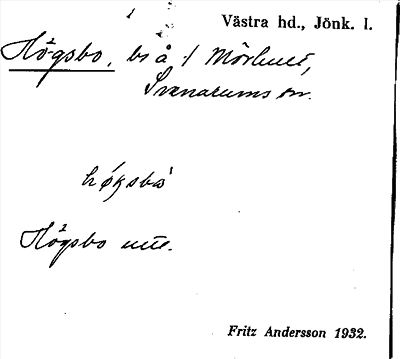 Västra hd., Jönk. l.
Högsbo, bs å / Mörhult,
Svenarums sn.
høksbω
Högsbo
Fritz Andersson 1932.